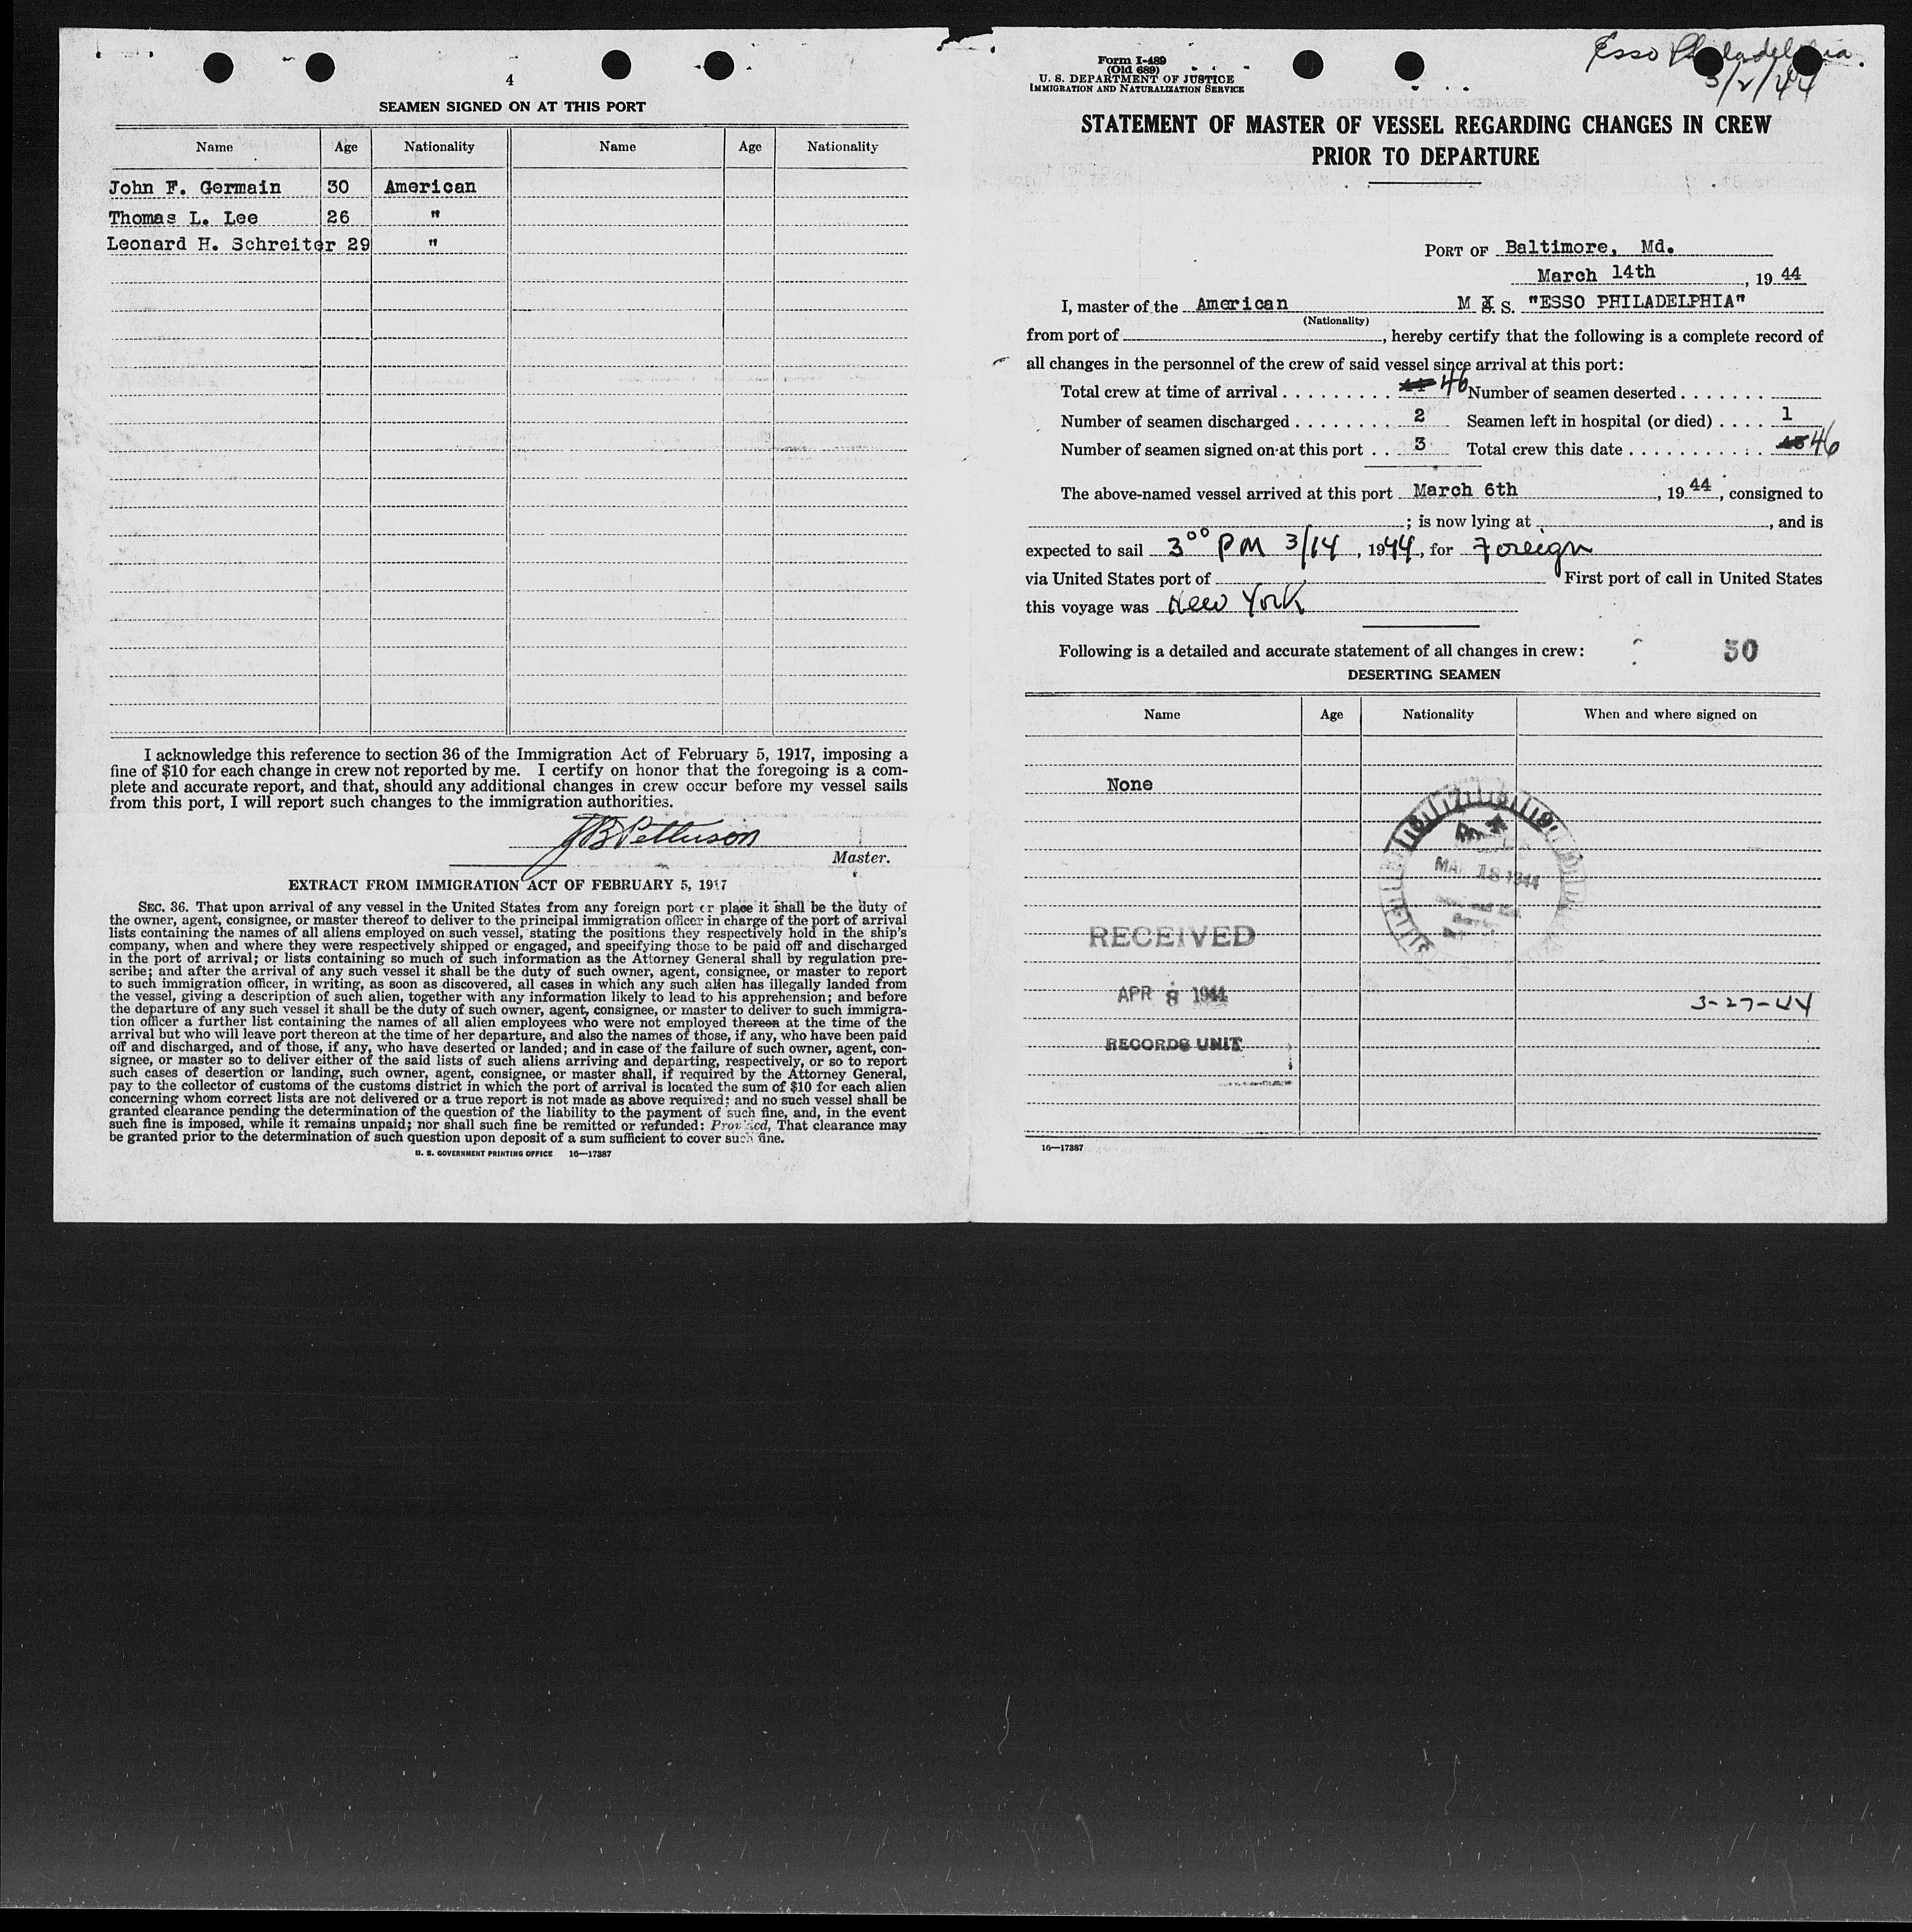 4
SEAMEN SIGNED ON AT THIS PORT
Name Age Nationality Name Age Nationality
John F. Germain 30 American
Thomas L. Lee 26 "
Leonard H. Schreiter 29 "
I acknowledge this reference to section 36 of the Immigration Act of February 5, 1917, imposing a
fine of $10 for each change in crew not reported by me. I certify on honor that the foregoing is a com-
plete and accurate report, and that, should any additional changes in crew occur before my vessel sails
from this port, I will report such changes to the immigration authorities.
Master.
EXTRACT FROM IMMIGRATION ACT OF FEBRUARY 5, 1917
SEC. 36. That upon arrival of any vessel in the United States from any foreign port or place it shall be the duty of
the owner, agent, consignee, or master thereof to deliver to the principal immigration officer in charge of the port of arrival
lists containing the names of all aliens employed on such vessel, stating the positions they respectively hold in the ship's
company, when and where they were respectively shipped or engaged, and specifying those to be paid off and discharged
in the port of arrival; or lists containing so much of such information as the Attorney General shall by regulation pre-
scribe; and after the arrival of any such vessel it shall be the duty of such owner, agent, consignee, or master to report
to such immigration officer, in writing, as soon as discovered, all cases in which any such alien has illegally landed from
the vessel, giving a description of such alien, together with any information likely to lead to his apprehension; and before
the departure of any such vessel it shall be the duty of such owner, agent, consignee, or master to deliver to such immigra-
tion officer a further list containing the names of all alien employees who were not employed thereon at the time of the
arrival but who will leave port thereon at the time of her departure, and also the names of those, if any, who have been paid
off and discharged, and of those, if any, who have deserted or landed; and in case of the failure of such owner, agent, con-
signee, or master so to deliver either of the said lists of such aliens arriving and departing, respectively, or so to report
such cases of desertion or landing, such owner, agent, consignee, or master shall, if required by the Attorney General,
pay to the collector of customs of the customs district in which the port of arrival is located the sum of $10 for each alien
concerning whom correct lists are not delivered or a true report is not made as above required; and no such vessel shall be
granted clearance pending the determination of the question of the liability to the payment of such fine, and, in the event
such fine is imposed, while it remains unpaid; nor shall such fine be remitted or refunded: Provided, That clearance may
be granted prior to the determination of such question upon deposit of a sum sufficient to cover such fine.
U. S. GOVERNMENT PRINTING OFFICE 16—17387
Form I-489
(Old 689)
U. S. DEPARTMENT OF JUSTICE
IMMIGRATION AND NATURALIZATION SERVICE
Esso Philadelphia.
3/2/44
STATEMENT OF MASTER OF VESSEL REGARDING CHANGES IN CREW
PRIOR TO DEPARTURE
PORT OF Baltimore, Md.
March 14th, 1944
I, master of the American M S. S. "ESSO PHILADELPHIA"
(Nationality)
from port of , hereby certify that the following is a complete record of
all changes in the personnel of the crew of said vessel since arrival at this port:
Total crew at time of arrival 46 Number of seamen deserted
Number of seamen discharged 2 Seamen left in hospital (or died) 1
Number of seamen signed on at this port 3 Total crew this date 46
The above-named vessel arrived at this port March 6th, 1944, consigned to
; is now lying at , and is
expected to sail 3⁰⁰ PM 3/14, 1944, for Foreign
via United States port of First port of call in United States
this voyage was New York
Following is a detailed and accurate statement of all changes in crew: 30
DESERTING SEAMEN
Name Age Nationality When and where signed on
None
MAR 18 1944
RECEIVED
APR 8 1944
3-27-44
RECORDS UNIT
16—17387